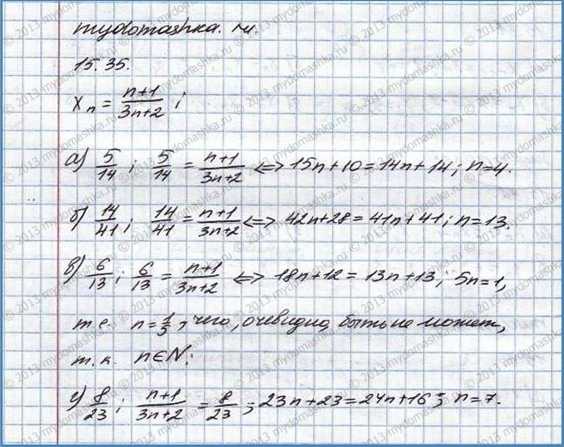 mydomashka.ru.
15.35.
xₙ = (n+1)/(3n+2) ;
а) 5/14 ; 5/14 = (n+1)/(3n+2) ⇔ 15n+10=14n+14; n=4.
б) 14/41 ; 14/41 = (n+1)/(3n+2) ⇔ 42n+28=41n+41; n=13.
в) 6/13 ; 6/13 = (n+1)/(3n+2) ⇔ 18n+12=13n+13; 5n=1,
т.е. n=1/5, чего, очевидно, быть не может,
т.к. n∈N;
г) 8/23 ; (n+1)/(3n+2) = 8/23 ; 23n+23=24n+16; n=7.